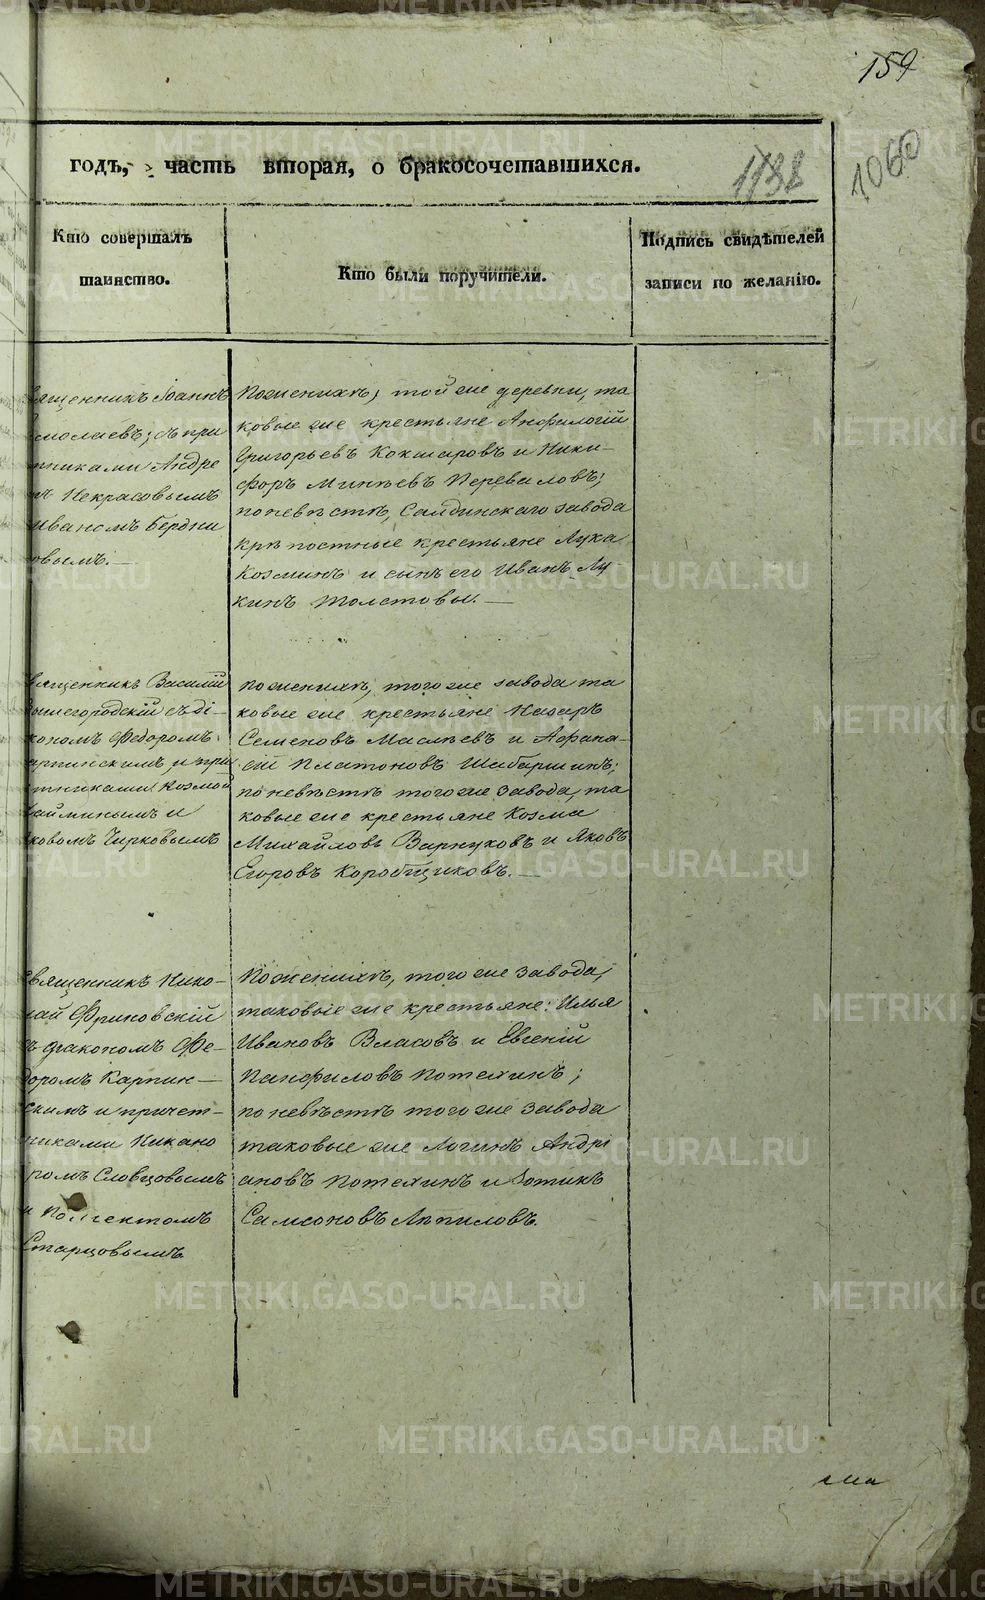 159
годъ, часть вторая, о бракосочетавшихся.
1138
1060
Кто совершалъ
таинство.
Кто были поручители.
Подпись свидѣтелей
записи по желанію.
вященникъ Іоаннъ
рмолаевъ; съ при
тниками Андре
мъ Некрасовымъ
Иваномъ Бердни
овымъ.—
По женихѣ, той же деревни, та
ковые же крестьяне Амфилогій
Григорьевъ Кокшаровъ и Ники-
форъ Минѣевъ Переваловъ;
по невѣстѣ, Салдинскаго завода
крѣпостные крестьяне Лука
Козминъ и сынъ его Иванъ Лу-
кинъ Толстовы.—
вященникъ Василій
Вышегородскій съ ді-
кономъ Федоромъ
арпинскимъ, и при
тниками Козмой
и
ковомъ Чирковымъ
по женихѣ, того же завода та
ковые же крестьяне Назаръ
Семеновъ Маслѣевъ и Афана-
сій Платоновъ Шабаршинъ;
по невѣстѣ того же завода, та
ковые же крестьяне Козма
Михайловъ Варнуховъ и Яковъ
Егоровъ Коробщиковъ.—
Священникъ Нико-
лай Фриновскій
съ діакономъ Фе-
доромъ Карпин-
скимъ и причет-
никами Никано
ромъ Словцовымъ
и
Старцовымъ
По женихѣ, того же завода,
таковые же крестьяне: Илья
Ивановъ Власовъ и Евгеній
Панфиловъ Потехинъ;
по невѣстѣ того же завода
таковые же Логинъ Андрі
ановъ Потехинъ и Фотикъ
Самсоновъ Антиловъ.
METRIKI.GASO-URAL.RU